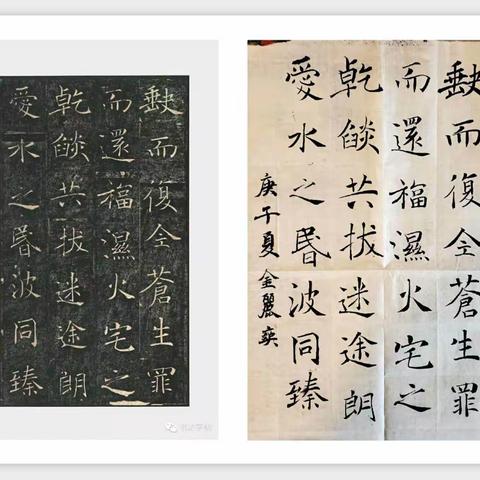 缺而復全蒼生罪
而還福濕火宅之
乾燄共拔迷途朗
愛水之昬波同臻
书法字帖
缺而復全蒼生罪
而還福濕火宅之
乾燄共拔迷途朗
愛水之昬波同臻
庚午夏金麗